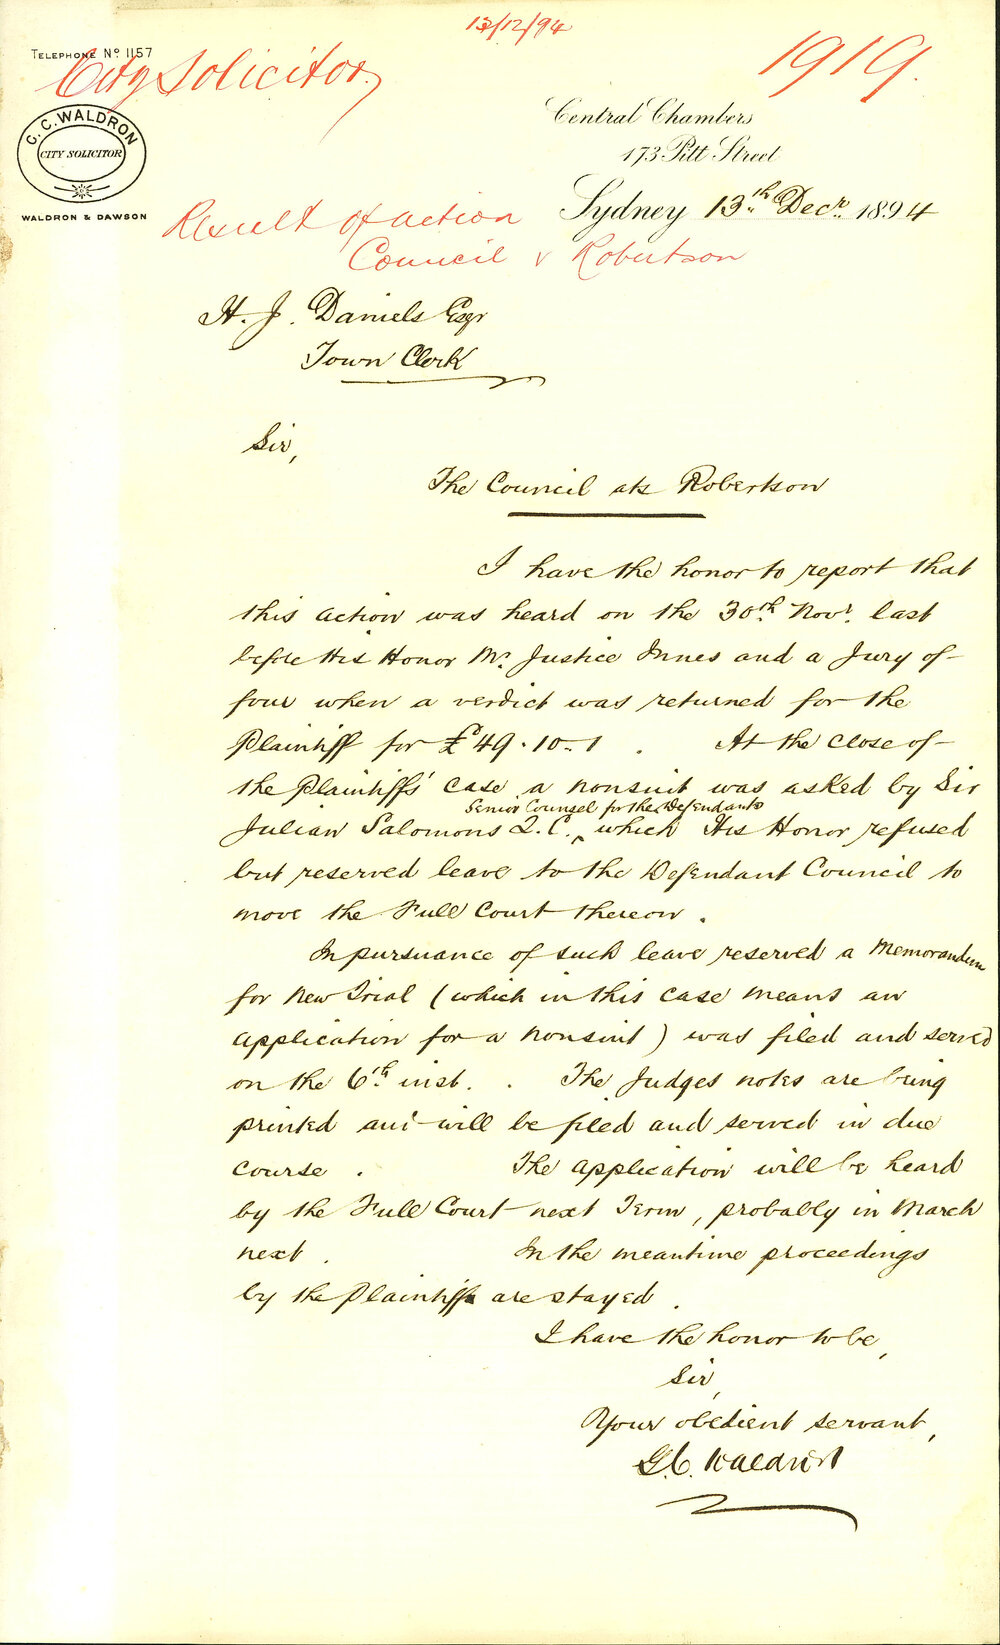 13/12/94
1919.
TELEPHONE No. 1157
City Solicitor
G. C. WALDRON
CITY SOLICITOR
WALDRON & DAWSON
Central Chambers
173 Pitt Street
Sydney 13th Decr. 1894
Result of action
Council v Robertson
H. J. Daniels Esqr
Town Clerk
Sir,
The Council ats Robertson
I have the honor to report that
this action was heard on the 30th Novr. last
before His Honor Mr. Justice Innes and a Jury of
four when a verdict was returned for the
Plaintiff for £49.10.1 . At the close of
the Plaintiffs' case a nonsuit was asked by Sir
Senior Counsel for the Defendants
Julian Salomons Q.C. ‸ which His Honor refused
but reserved leave to the Defendant Council to
move the Full Court thereon .
In pursuance of such leave reserved a Memorandum
for New Trial (which in this case means an
application for a nonsuit) was filed and served
on the 6th inst. . The Judges notes are being
printed and will be filed and served in due
course . The application will be heard
by the Full Court next Term, probably in March
next . In the meantime proceedings
by the Plaintiff are stayed .
I have the honor to be,
Sir,
Your obedient servant,
G.C. Waldron